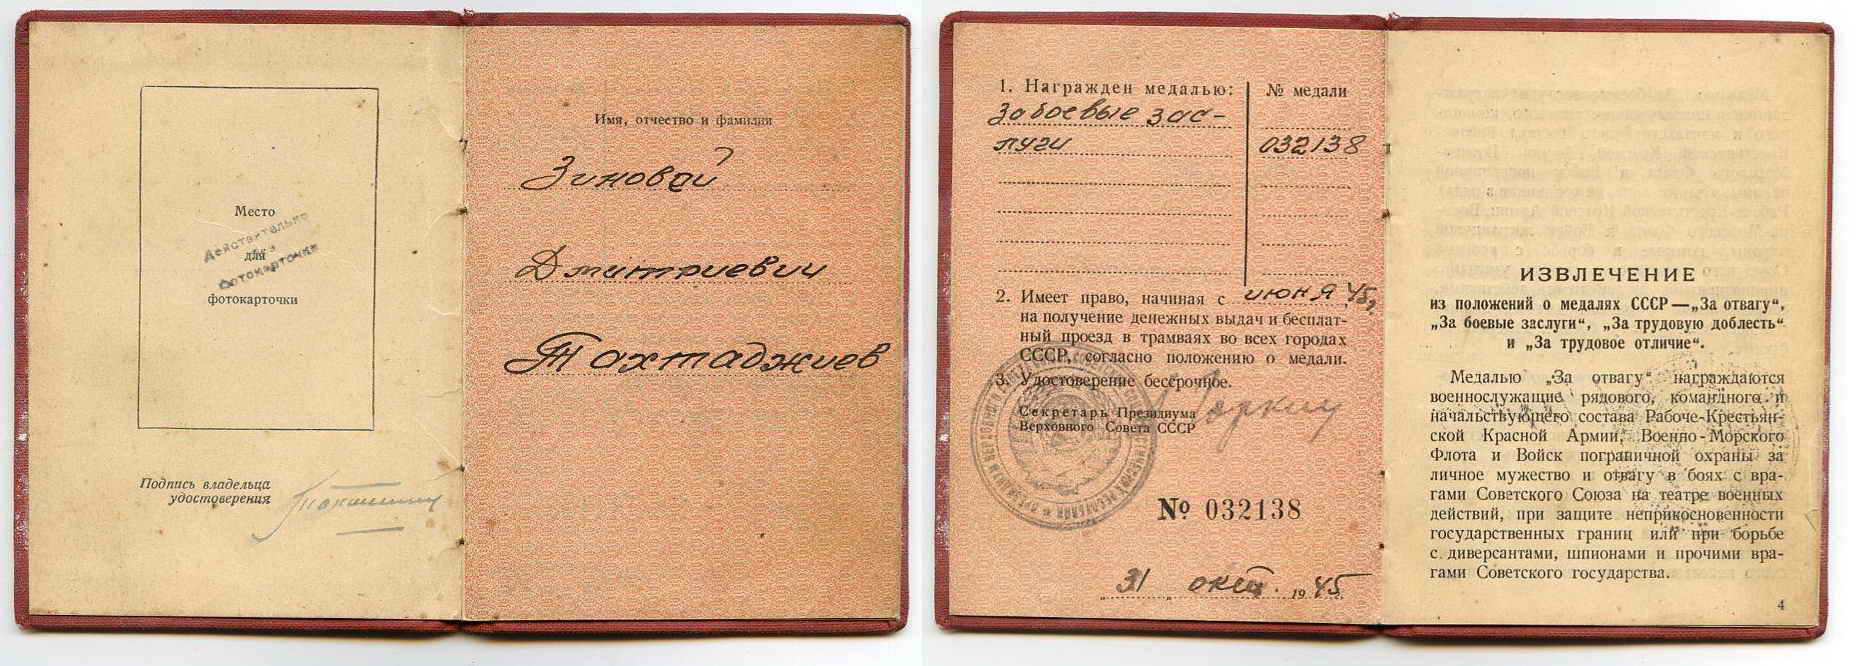 Место
для
фотокарточки
Действительно
без
фотокарточки
Подпись владельца
удостоверения
Имя, отчество и фамилия
Зиновей
Дмитриевич
Тахтаджиев
1. Награжден медалью:
За боевые зас-
луги
№ медали
032138
2. Имеет право, начиная с июня 45г
на получение денежных выдач и бесплат-
ный проезд в трамваях во всех городах
СССР, согласно положению о медали.
3. Удостоверение бессрочное.
Секретарь Президиума
Верховного Совета СССР
Горкин
№ 032138
„31„ окт. 1945
ИЗВЛЕЧЕНИЕ
из положений о медалях СССР—„За отвагу“,
„За боевые заслуги“, „За трудовую доблесть“
и „За трудовое отличие“.
Медалью „За отвагу“ награждаются
военнослужащие рядового, командного и
начальствующего состава Рабоче-Крестьян-
ской Красной Армии, Военно-Морского
Флота и Войск пограничной охраны за
личное мужество и отвагу в боях с вра-
гами Советского Союза на театре военных
действий, при защите неприкосновенности
государственных границ или при борьбе
с диверсантами, шпионами и прочими вра-
гами Советского государства.
4